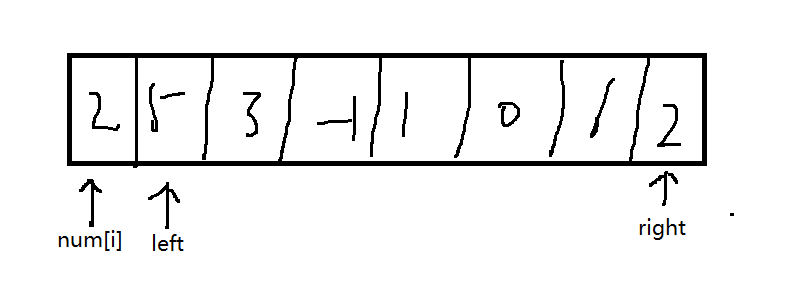 2 5 3 -1 1 0 1 2
num[i] left right